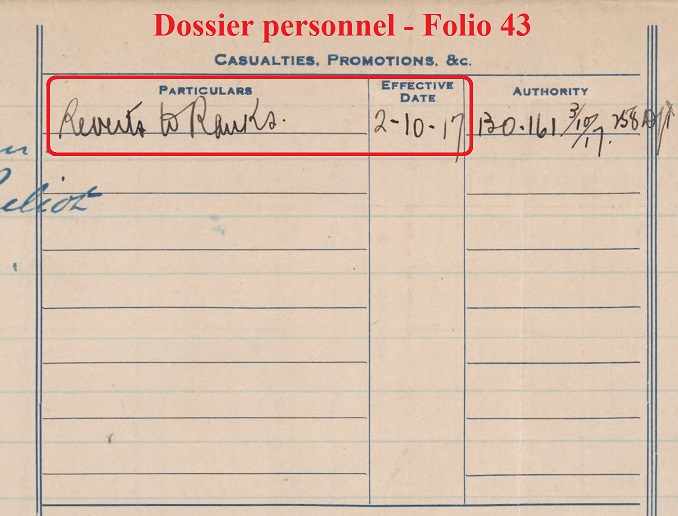 Dossier personnel - Folio 43
CASUALTIES, PROMOTIONS, &c.
PARTICULARS EFFECTIVE DATE AUTHORITY
Reverts to Ranks. 2-10-17 130.161 3/10/17.